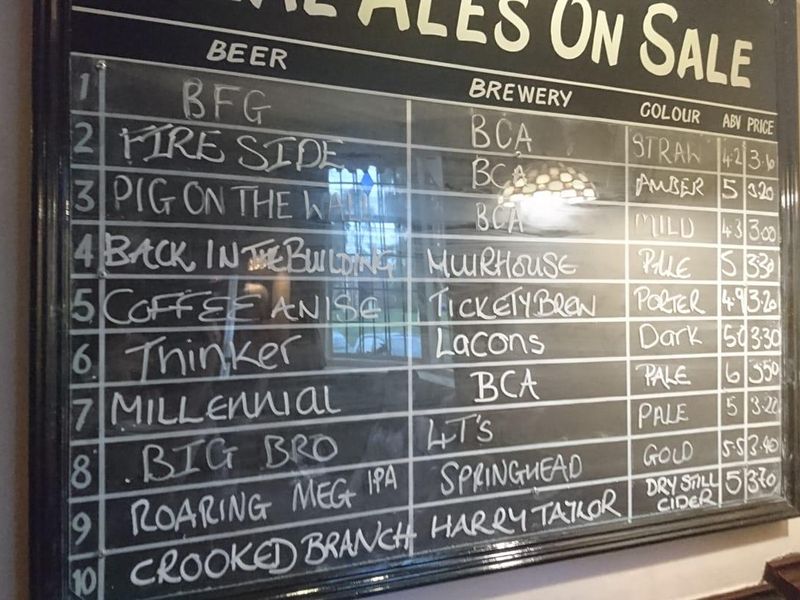 ALES ON SALE
BEER BREWERY COLOUR ABV PRICE
1 BFG BCA STRAW 4.2
2 FIRE SIDE BCA AMBER 5 3.20
3 PIG ON THE WALL BCA MILD 4.3 3.00
4 BACK IN THE BUILDING MUIRHOUSE PALE 5 3.30
5 COFFEE ANISE TICKETYBREW PORTER 4.9 3.20
6 Thinker Lacons Dark 5.0 3.30
7 MILLENNIAL BCA PALE 6 3.50
8 BIG BRO 4T'S PALE 5 3.20
9 ROARING MEG IPA SPRINGHEAD GOLD 5.5 3.40
10 CROOKED BRANCH HARRY TAYLOR DRY STILL CIDER 5 3.70